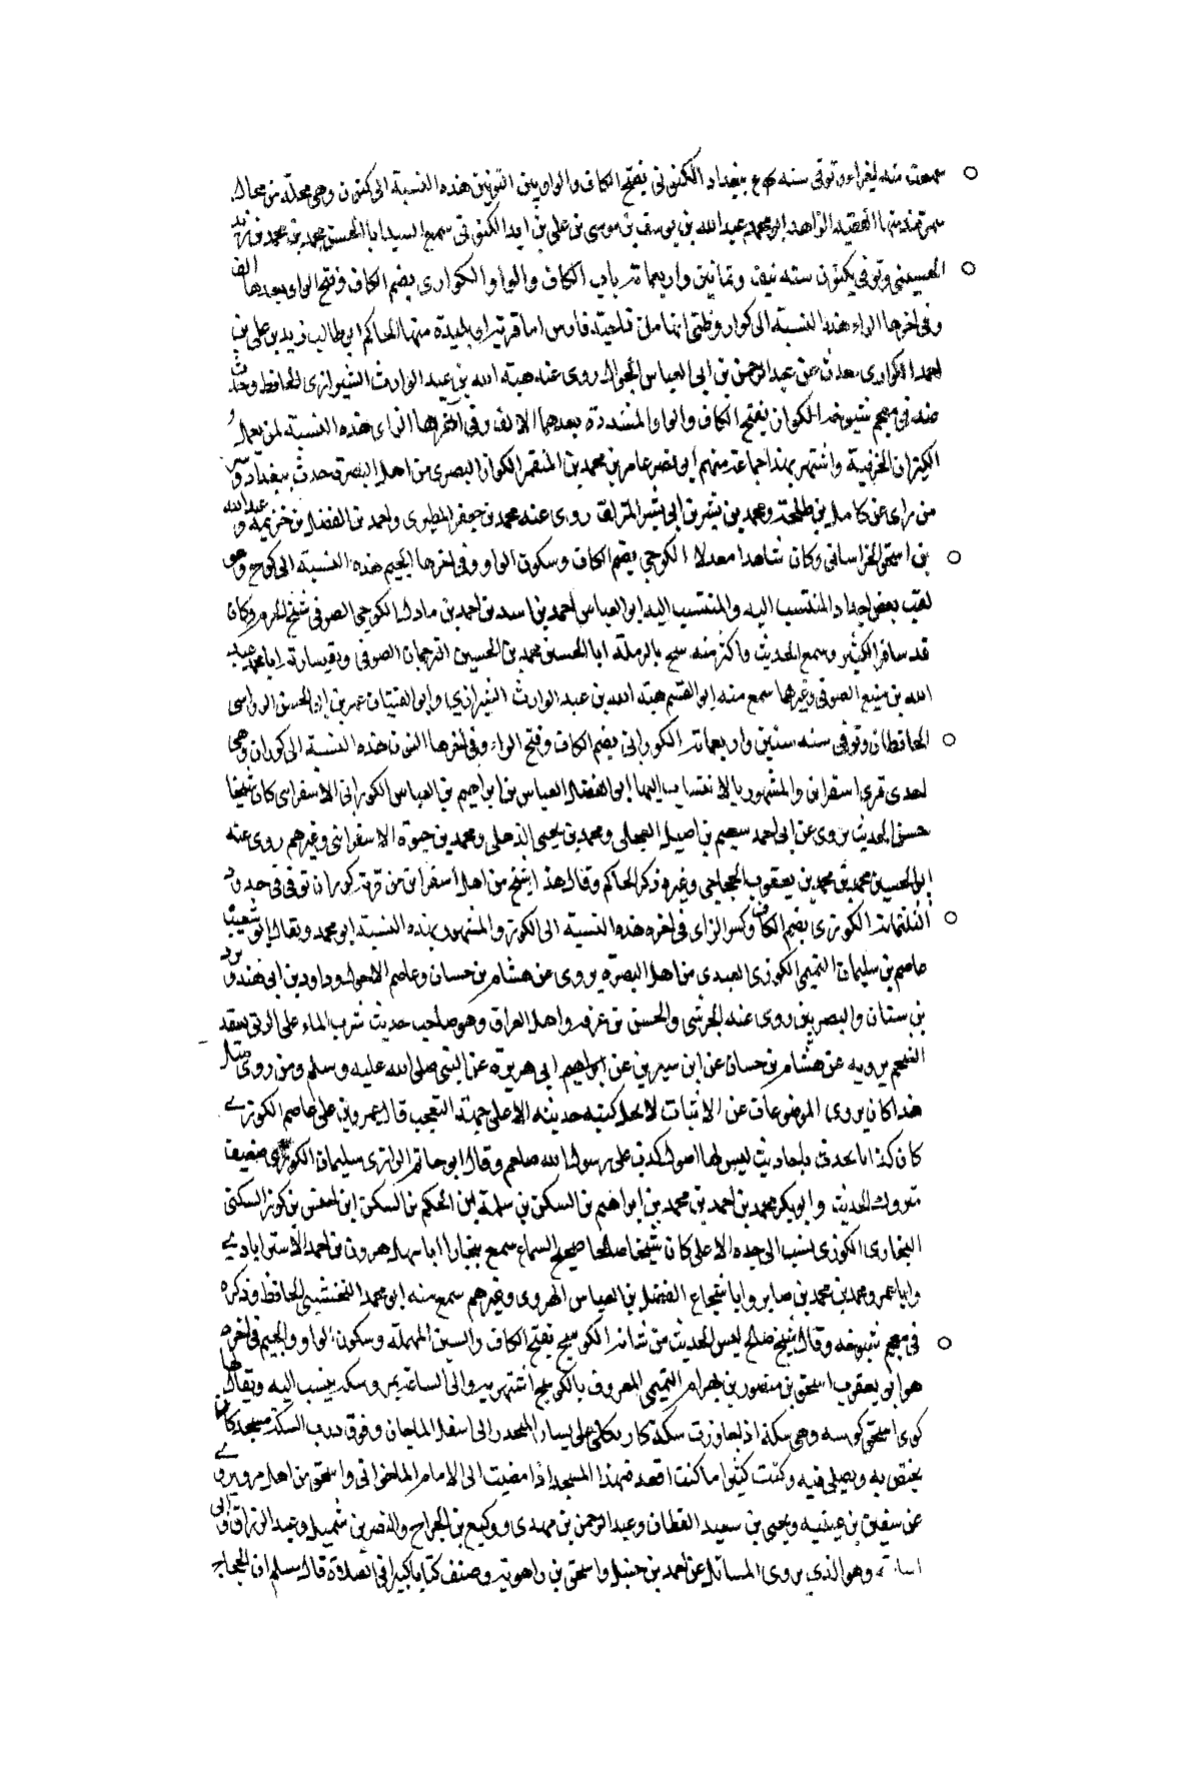 سمعت منه ببغداد وتوفى سنه ببغداد الكنونى بفتح الكاف والواو بين النونين هذه النسبة الى كنون وهى محلة من محال
سمرقند منها الفقيه الزاهد ابو محمد عبد الله بن يوسف بن موسى بن على بن الكنونى سمع السيد ابا الحسن محمد بن محمد بن زيد
الحسينى وتوفى بكنون سنه نيف وثمانين واربعمائة باب الكاف والواو الكوارى بضم الكاف وفتح الواو بعدها الف
وفى اخرها الراء هذه النسبة الى كوار وظنى انها من ناحية فارس اما قرية او بليدة منها الحاكم ابو طالب زيد بن على بن
احمد الكوارى حدث عن عبد الرحمن بن ابى العباس الجوال روى عنه هبة الله بن عبد الوارث الشيرازى الحافظ وحدث
عنه فى معجم شيوخه الكواز بفتح الكاف والواو المشددة بعدهما الالف وفى اخرها الزاى هذه النسبة لمن يعمل
الكيزان الخزفية واشتهر بهذا جماعة منهم ابو نصر عامر بن محمد بن المتقمر الكواز البصرى من اهل البصرة حدث ببغداد وسر
من راى عن كامل بن طلحة ومحمد بن بشر بن ابى بشر المزلق روى عنه محمد بن جعفر المطيرى واحمد بن الفضل بن خزيمة وعبد الله
بن اسحق الخراسانى وكان شاهدا معدلا الكوجى بضم الكاف وسكون الواو وفى اخرها الجيم هذه النسبة الى كوج وهو
لقب بعض اجداد المنتسب اليه والمنتسب اليه ابو العباس احمد بن اسد بن احمد بن مادل الكوجى الصوفى شيخ الحرم وكان
قد سافر الكثير وسمع الحديث واكثر منه سمع بالرملة ابا الحسين محمد بن الحسين الترجمان الصوفى وبقيسارية ابا محمد عبد
الله بن منيع الصوفى وغيرها سمع منه ابو القسم هبة الله بن عبد الوارث الشيرازى وابو الفتيان عمر بن ابى الحسن الرواسى
الحافظان وتوفى سنه ستين واربعمائة الكورانى بضم الكاف وفتح الراء وفى اخرها النون هذه النسبة الى كوران وهى
احدى قرى اسفراين والمشهور بالانتساب اليها ابو الفضل العباس بن ابراهيم بن العباس الكورانى الاسفراينى كان شيخا
حسن الحديث يروى عن ابى احمد سعيد بن اصيل العجلى ومحمد بن يحيى الذهلى ومحمد بن حيوة الاسفراينى وغيرهم روى عنه
ابو الحسين محمد بن محمد بن يعقوب الحجاجى وغيره ذكر الحاكم وقال هذا شيخ من اهل اسفراين من قرية كوران توفى فى حدود
الثلثمائة الكوزى بضم الكاف وكسر الزاى فى اخره هذه النسبة الى الكوز والمشهور بهذه النسبة ابو محمد ويقال ابو شعيب
عاصم بن سليمان التميمى الكوزى العبدى من اهل البصرة يروى عن هشام بن حسان وعاصم الاحول وداود بن ابى هند وبرد
بن سنان والبصريين روى عنه الجرشى والحسن بن عرفة واهل العراق وهو صاحب حديث شرب الماء على الريق يعقد
الشحم يرويه عن هشام بن حسان عن ابن سيرين عن ابى هريرة عن النبى صلى الله عليه وسلم ومن روى مثل
هذا كان يروى الموضوعات عن الاثبات لا يحل كتبه حديثه الا على جهة التعجب قال عمرو بن على عاصم الكوزى
كان كذابا يحدث باحاديث ليس لها اصول كذب على رسول الله صلعم وقال ابو حاتم الرازى سليمان الكوزى ضعيف
متروك الحديث وابو بكر محمد بن احمد بن محمد بن ابراهيم بن السكن بن سلمة ابن الحكم بن السكن ابن اخنس بن كوز السكنى
البخارى الكوزى نسب الى جده الاعلى كان شيخا صالحا صحيح السماع سمع ببخارا ابا سهل هرون بن احمد الاسترابادى
وابا عمرو محمد بن محمد بن صابر وابا شجاع الفضل بن العباس الهروى وغيرهم سمع منه ابو محمد النخشبى الحافظ وذكره
فى معجم شيوخه وقال شيخ صالح ليس الحديث من شانه الكوسج بفتح الكاف والسين المهملة وسكون الواو والجيم فى اخرها
هو ابو يعقوب اسحق بن منصور بن بهرام التميمى المعروف بالكوسج اشتهر به والى الساعة بمرو سكة ينسب اليه ويقال لها
كوى اسحق كوسه وهى سكة اذا جاوزت سكة على يسار المنحدر الى اسفل الماجان وفوق درب السكة مسجد كان
يختص به ويصلى فيه وكنت كثيرا ما كنت اقعد فى هذا المسجد اذا مضيت الى الامام الماخوانى واسحق من اهل مرو يروى
عن سفين بن عيينه ويحيى بن سعيد القطان وعبد الرحمن بن مهدى ووكيع بن الجراح والنضر بن شميل وعبد الرزاق وابى
اسامة وهو الذى يروى المسائل عن احمد بن حنبل واسحق بن راهويه وصنف كتابا كبيرا فى الصلاة قال مسلم ابن الحجاج